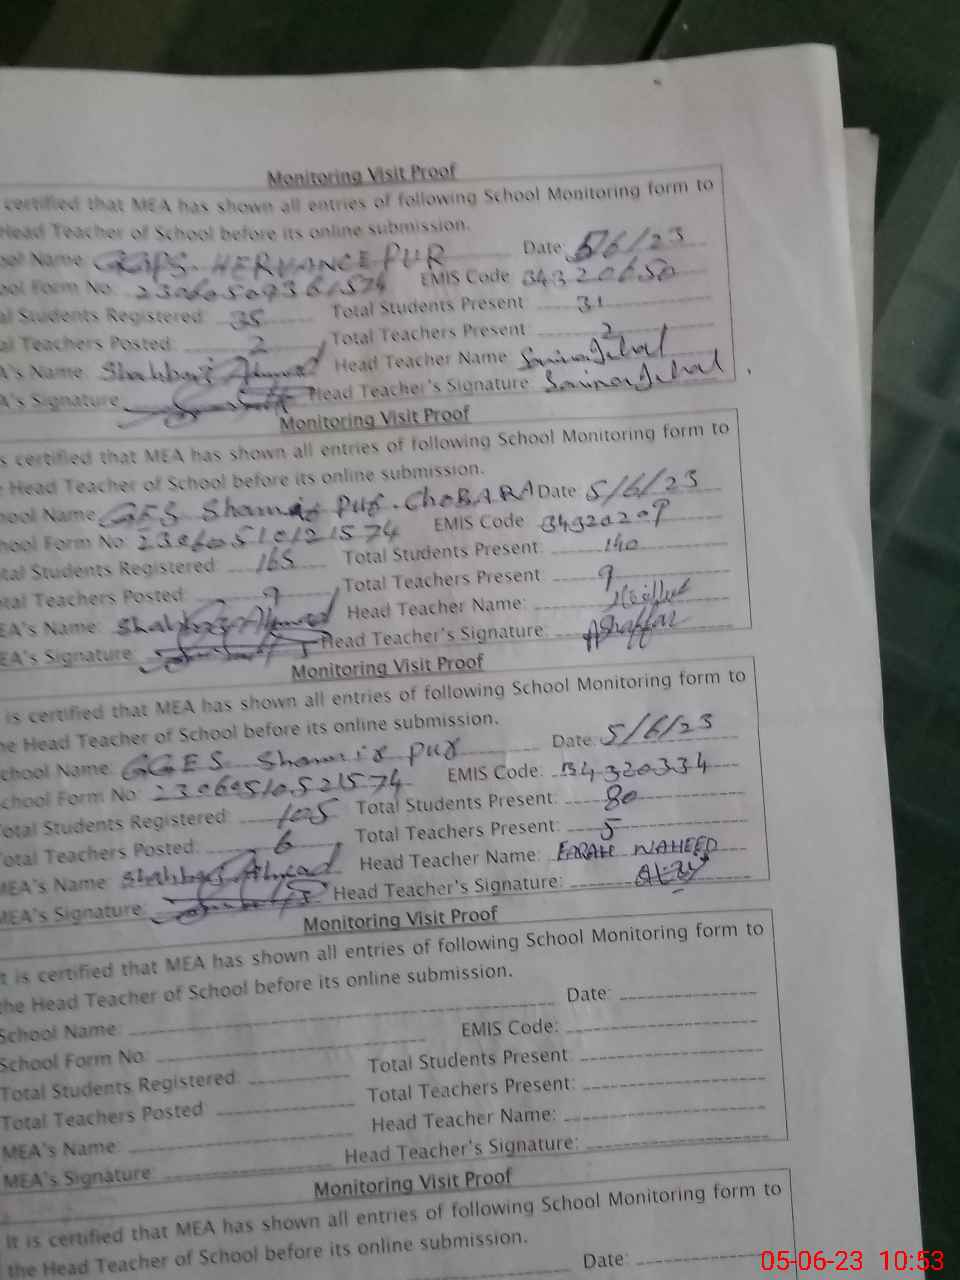 Monitoring Visit Proof
certified that MEA has shown all entries of following School Monitoring form to
Head Teacher of School before its online submission.
ool Name GGPS HERVANCE PUR Date 5/6/23
ool Form No: EMIS Code 34320650
al Students Registered: 35 Total Students Present 31
al Teachers Posted: 2 Total Teachers Present 2
A's Name: Shahbaz Ahmad Head Teacher Name
A's Signature Head Teacher's Signature
Monitoring Visit Proof
s certified that MEA has shown all entries of following School Monitoring form to
Head Teacher of School before its online submission.
hool Name GES Shamir pur. ChoBARA Date 5/6/23
hool Form No: 23060510121574 EMIS Code 34320209
tal Students Registered: 165 Total Students Present: 140
otal Teachers Posted: 9 Total Teachers Present: 9
EA's Name: Shahbaz Ahmad Head Teacher Name:
EA's Signature: Head Teacher's Signature:
Monitoring Visit Proof
is certified that MEA has shown all entries of following School Monitoring form to
he Head Teacher of School before its online submission.
chool Name: GGES Shamir pur Date: 5/6/23
chool Form No: 23060510521574 EMIS Code: 34320334
otal Students Registered: 105 Total Students Present: 80
otal Teachers Posted: 6 Total Teachers Present: 5
MEA's Name: Shahbaz Ahmad Head Teacher Name: FARAH NAHEED
MEA's Signature: Head Teacher's Signature:
Monitoring Visit Proof
t is certified that MEA has shown all entries of following School Monitoring form to
the Head Teacher of School before its online submission.
School Name: Date:
School Form No: EMIS Code:
Total Students Registered: Total Students Present:
Total Teachers Posted Total Teachers Present:
MEA's Name: Head Teacher Name:
MEA's Signature: Head Teacher's Signature:
Monitoring Visit Proof
It is certified that MEA has shown all entries of following School Monitoring form to
the Head Teacher of School before its online submission.
Date:
05-06-23 10:53